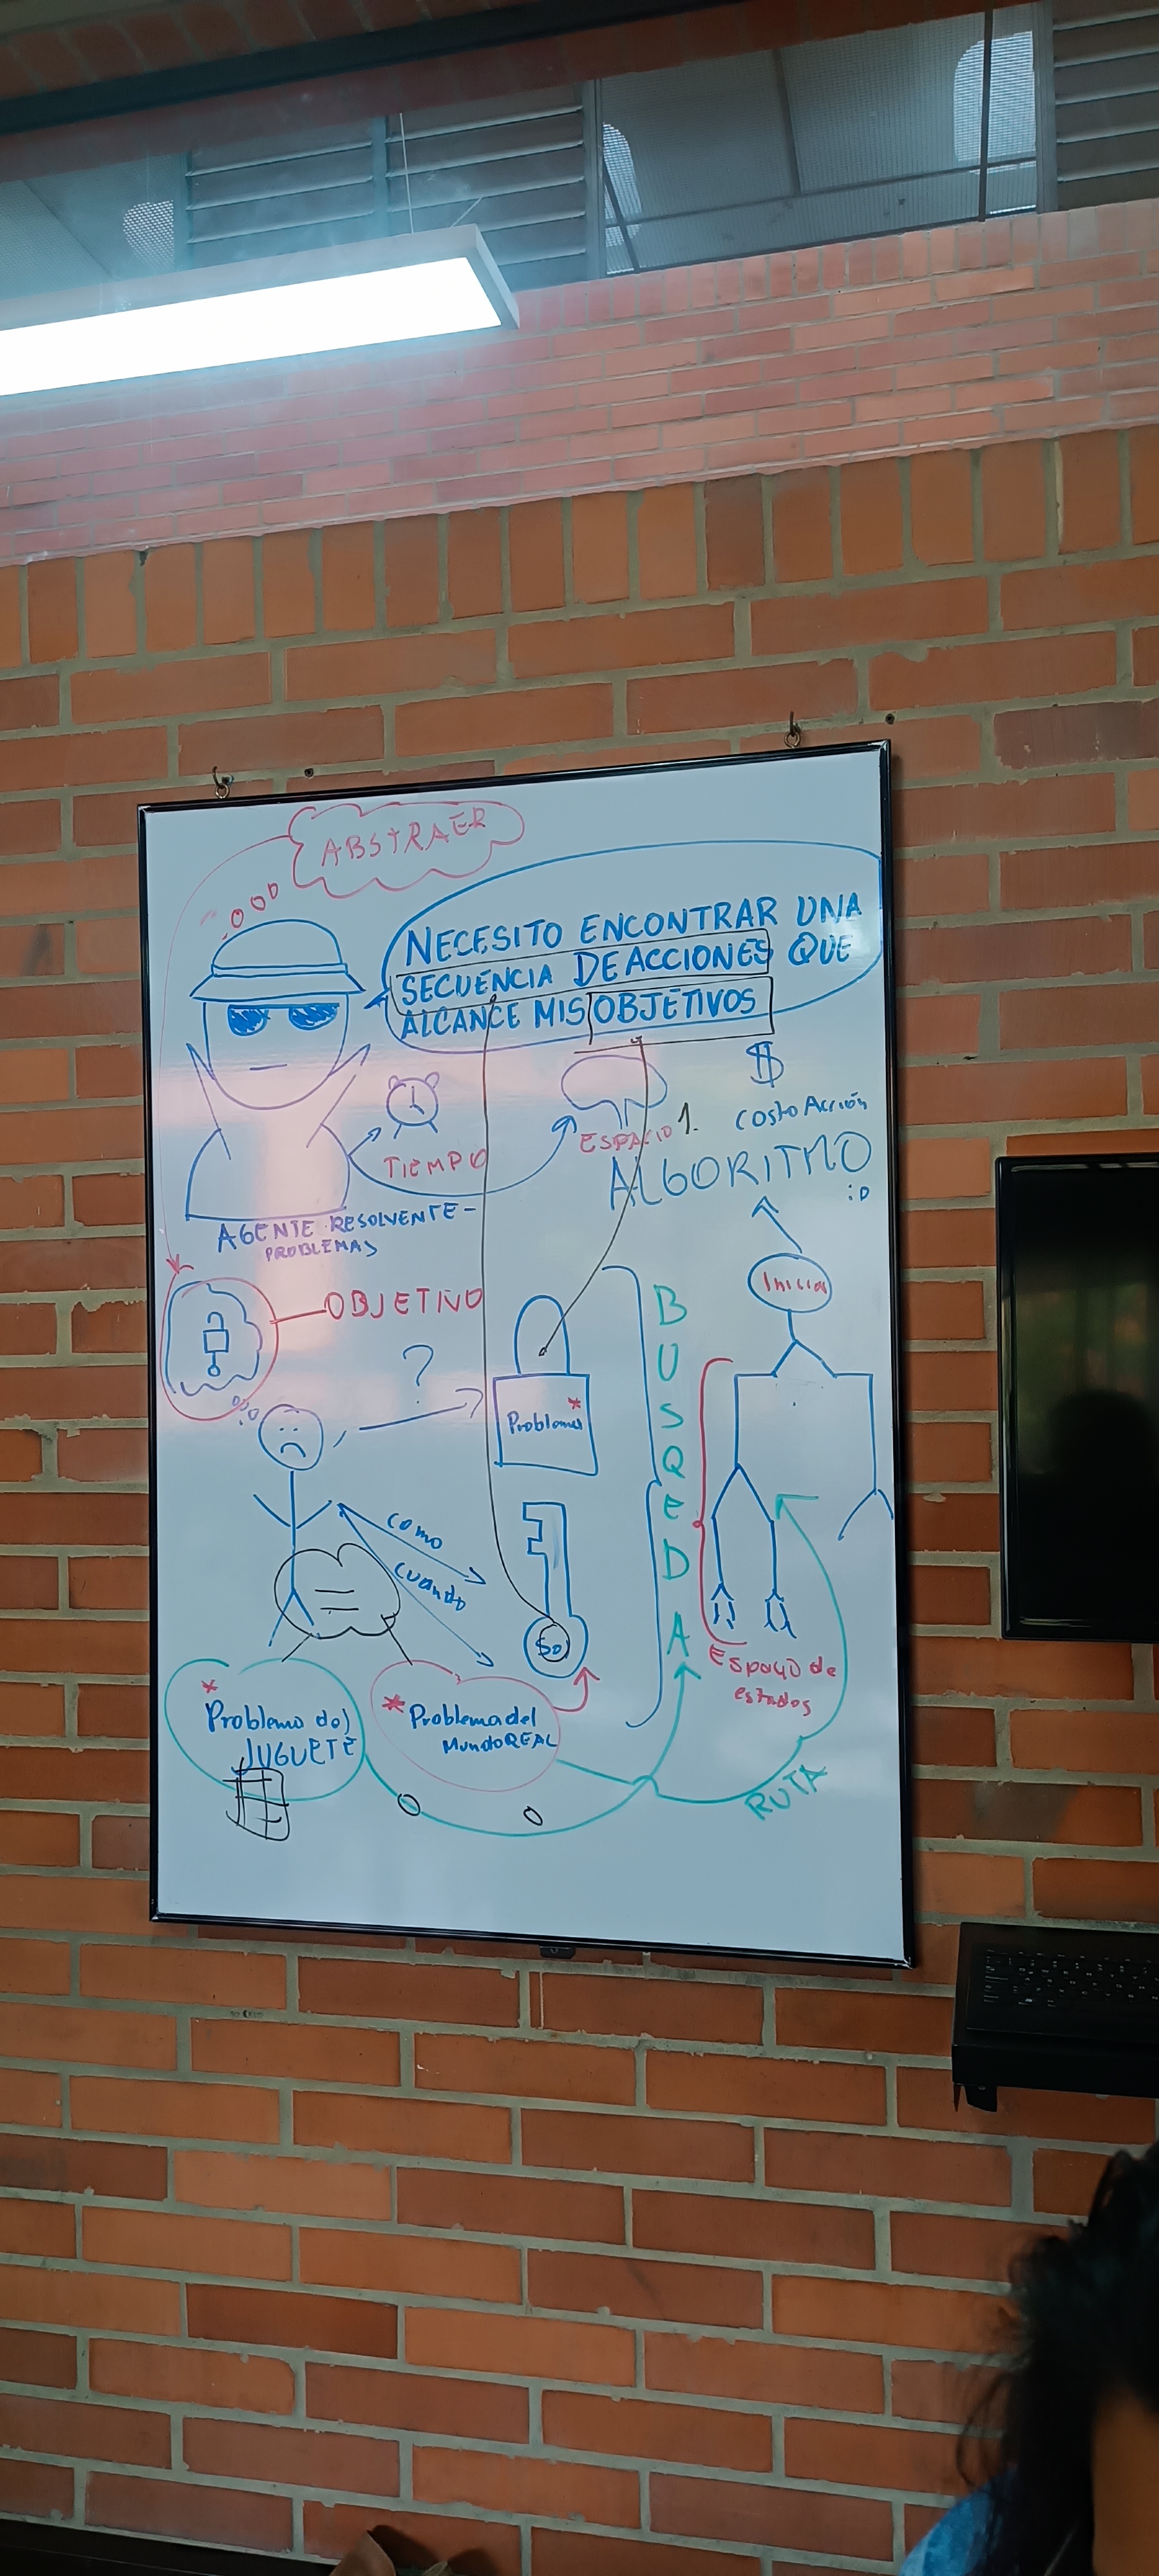 ABSTRAER
NECESITO ENCONTRAR UNA
SECUENCIA DE ACCIONES QUE
ALCANCE MIS OBJETIVOS
$
Costo Acción
TIEMPO
ESPACIO
1.
ALGORITMO
:D
AGENTE RESOLVENTE-
PROBLEMAS
Inicial
OBJETIVO
?
Problemas
*
BUSQEDA
como
cuando
Espacio de
estados
*
Problema del
JUGUETE
*
Problema del
Mundo REAL
RUTA